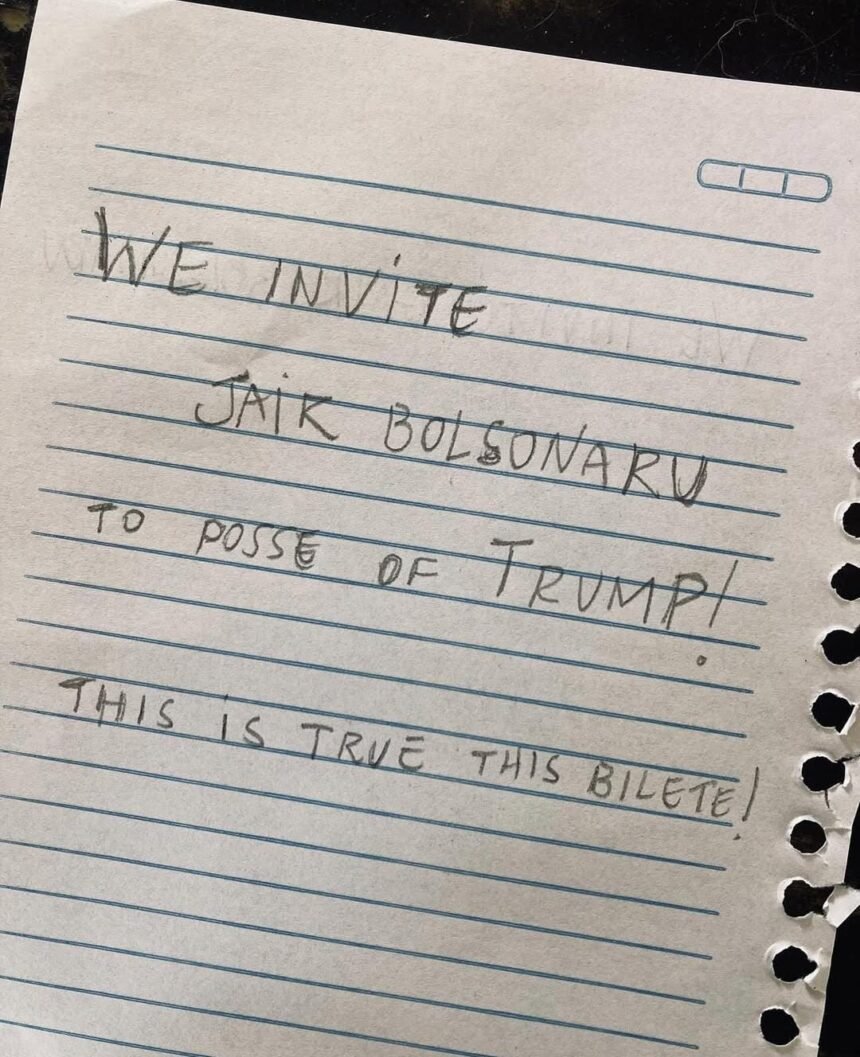 WE INVITE
JAIK BOLSONARU
TO POSSE OF TRUMP!
THIS IS TRUE THIS BILETE!